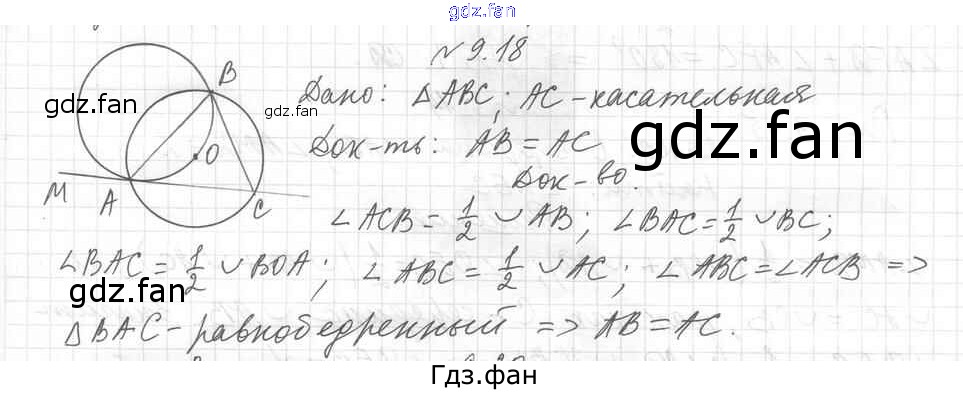 gdz.fan
№ 9.18
Дано: △ABC; AC - касательная
Док-ть: AB = AC
Док-во.
∠ACB = 1/2 ∪AB; ∠BAC = 1/2 ∪BC;
∠BAC = 1/2 ∪BOA; ∠ABC = 1/2 ∪AC; ∠ABC = ∠ACB =>
△BAC - равнобедренный => AB = AC.
B
O
M
A
C
gdz.fan
gdz.fan
gdz.fan
gdz.fan
gdz.fan
Гдз.фан